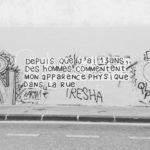 DEPUIS QUE J'AI 13 ANS,
DES HOMMES COMMENTENT
MON APPARENCE PHYSIQUE
DANS LA RUE